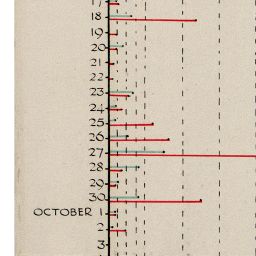 17
18
19
20
21
22
23
24
25
26
27
28
29
30
OCTOBER 1
2
3